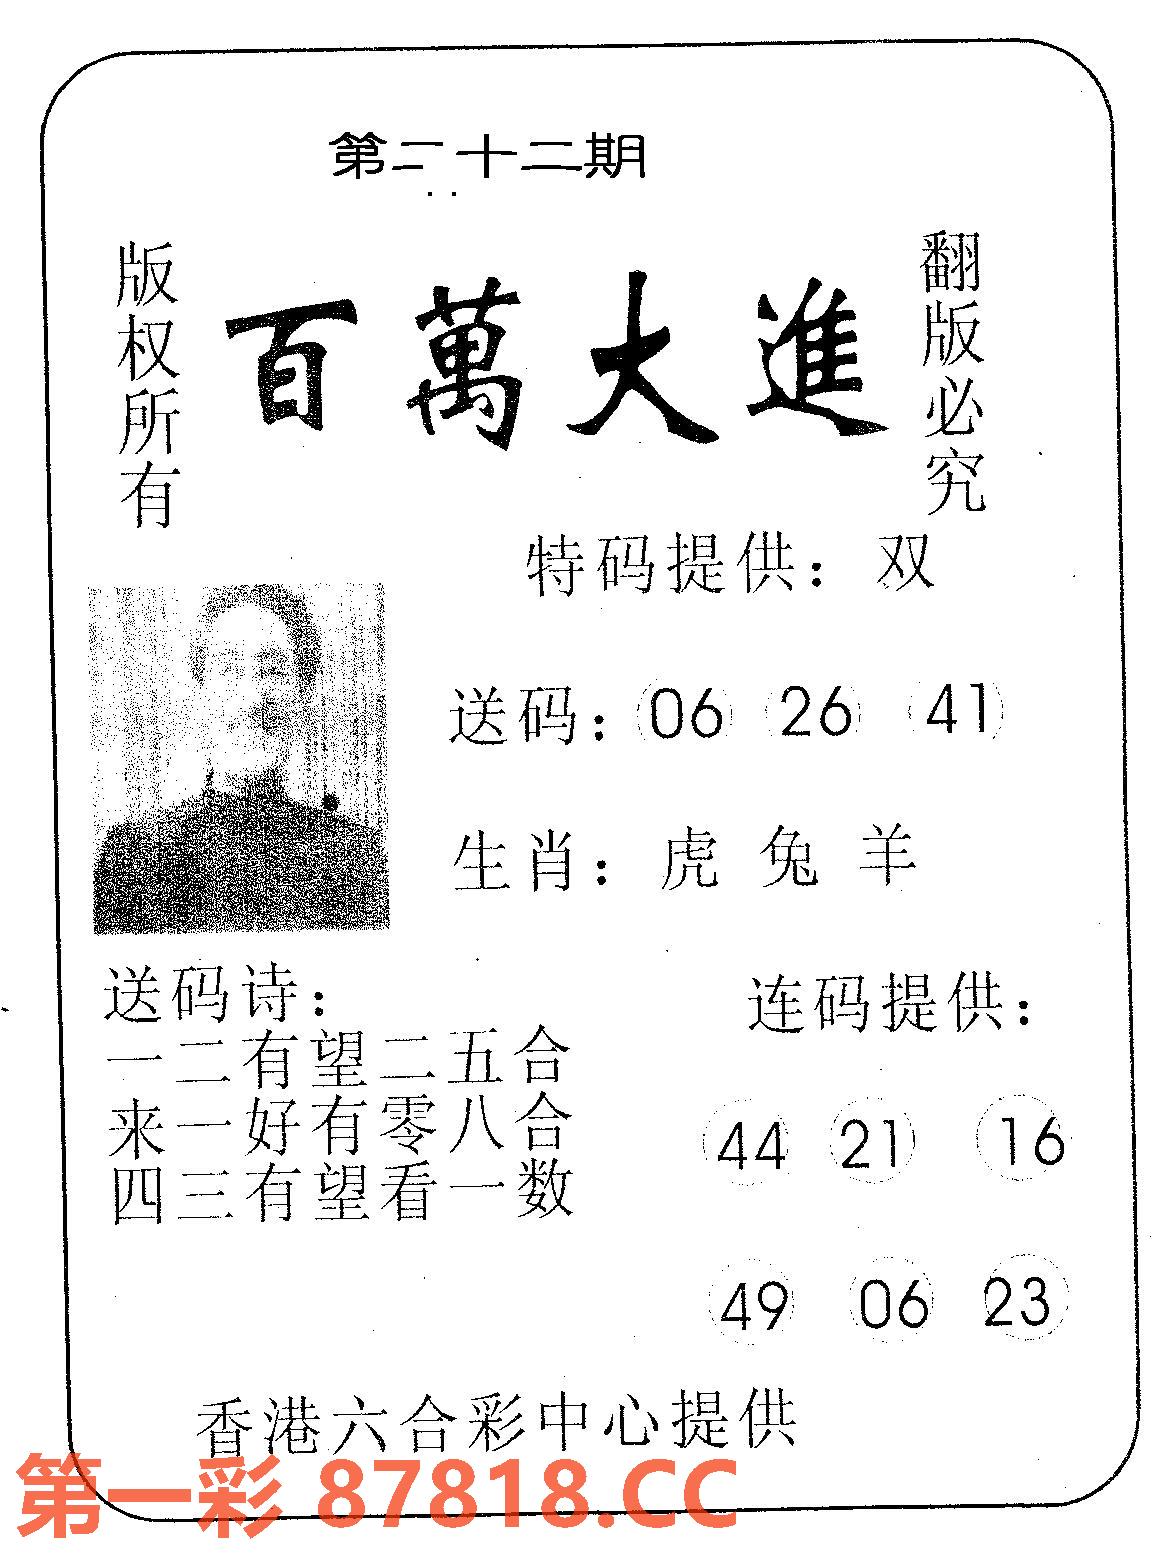 第二十二期
版权所有
百萬大進
翻版必究
特码提供：双
送码：06 26 41
生肖：虎 兔 羊
送码诗：
一二有望二五合
来一好有零八合
四三有望看一数
连码提供：
44 21 16
49 06 23
香港六合彩中心提供
第一彩 87818.CC